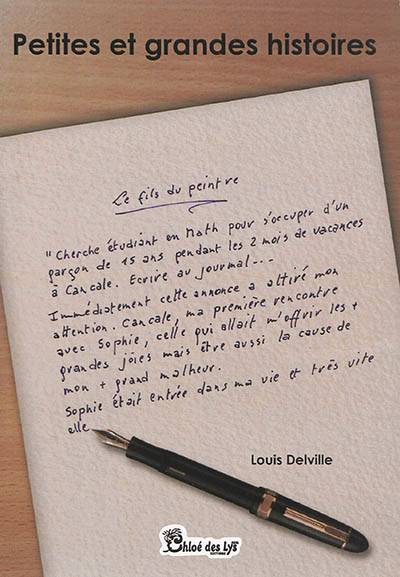 Petites et grandes histoires
Le fils du peintre
"Cherche étudiant en Math pour s'occuper d'un
garçon de 15 ans pendant les 2 mois de vacances
à Cancale. Ecrire au journal---
Immédiatement cette annonce a attiré mon
attention. Cancale, ma première rencontre
avec Sophie, celle qui allait m'offrir les +
grandes joies mais être aussi la cause de
mon + grand malheur.
Sophie était entrée dans ma vie et très vite
elle
Louis Delville
Chloé des Lys